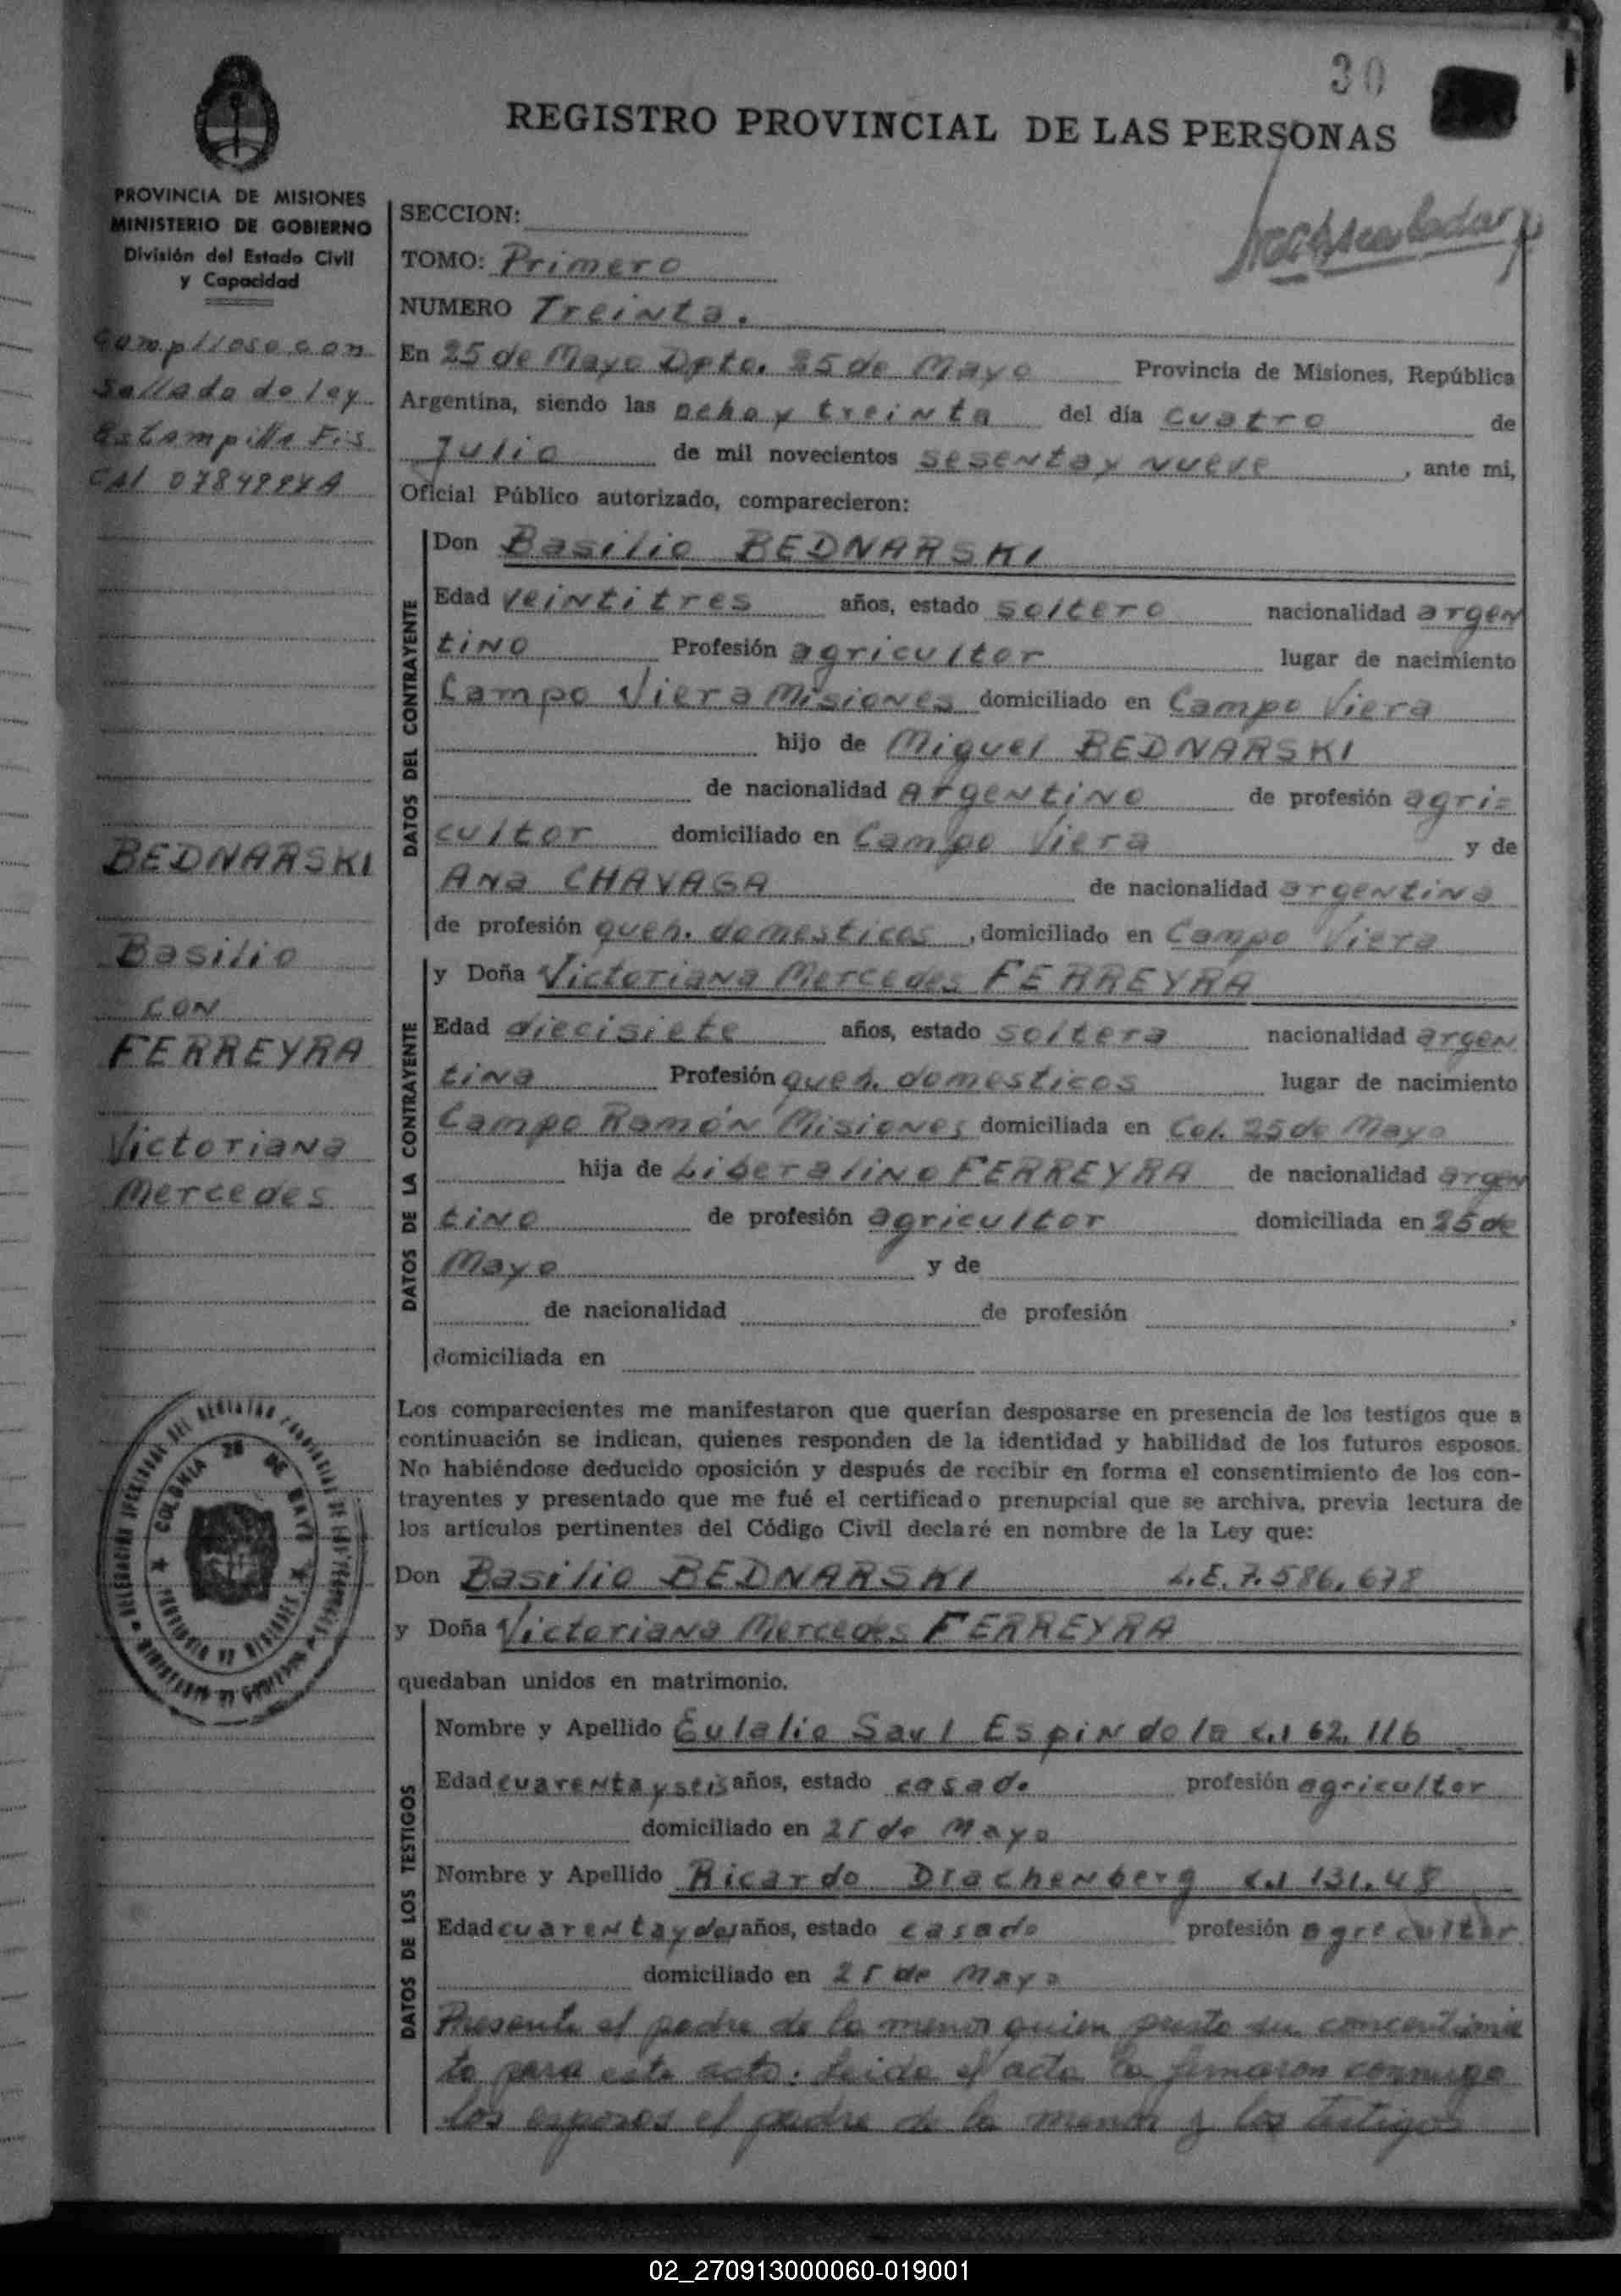 30
REGISTRO PROVINCIAL DE LAS PERSONAS
PROVINCIA DE MISIONES
MINISTERIO DE GOBIERNO
División del Estado Civil
y Capacidad
SECCION:
TOMO: Primero
NUMERO Treinta.
En 25 de Mayo Dpto. 25 de Mayo Provincia de Misiones, República
Argentina, siendo las ocho y treinta del día cuatro de
Julio de mil novecientos sesenta y nueve, ante mi,
Oficial Público autorizado, comparecieron:
sellado de ley
Estampilla Fis
DATOS DEL CONTRAYENTE
Don Basilio BEDNARSKI
Edad veintitres años, estado soltero nacionalidad argen
tino Profesión agricultor lugar de nacimiento
Campo Viera Misiones domiciliado en Campo Viera
hijo de Miguel BEDNARSKI
de nacionalidad Argentino de profesión agri=
cultor domiciliado en Campo Viera y de
Ana CHAVAGA de nacionalidad argentina
de profesión queh. domesticos, domiciliado en Campo Viera
BEDNARSKI
Basilio
CON
FERREYRA
Victoriana
Mercedes
DATOS DE LA CONTRAYENTE
y Doña Victoriana Mercedes FERREYRA
Edad diecisiete años, estado soltera nacionalidad argen
tina Profesión queh. domesticos lugar de nacimiento
Campo Ramón Misiones domiciliada en Col. 25 de Mayo
hija de Liberalino FERREYRA de nacionalidad argen
tino de profesión agricultor domiciliada en 25 de
Mayo y de
de nacionalidad de profesión ,
domiciliada en
Los comparecientes me manifestaron que querían desposarse en presencia de los testigos que a
continuación se indican, quienes responden de la identidad y habilidad de los futuros esposos.
No habiéndose deducido oposición y después de recibir en forma el consentimiento de los con-
trayentes y presentado que me fué el certificado prenupcial que se archiva, previa lectura de
los artículos pertinentes del Código Civil declaré en nombre de la Ley que:
Don Basilio BEDNARSKI L.E. 7.586.678
y Doña Victoriana Mercedes FERREYRA
quedaban unidos en matrimonio.
COLONIA 25 DE MAYO
PROVINCIA DE MISIONES
DATOS DE LOS TESTIGOS
Nombre y Apellido Eulalio Saul Espindola c.i 62.116
Edad cuarenta y seis años, estado casado profesión agricultor
domiciliado en 25 de Mayo
Nombre y Apellido Ricardo Drachenberg c.i 131.48
Edad cuarenta y dos años, estado casado profesión agricultor
domiciliado en 25 de Mayo
Presente el padre de la menor quien presto su concentimie
to para este acto: Leida el acta la firmaron conmigo
los esposos el padre de la menor y los testigos
02_270913000060-019001